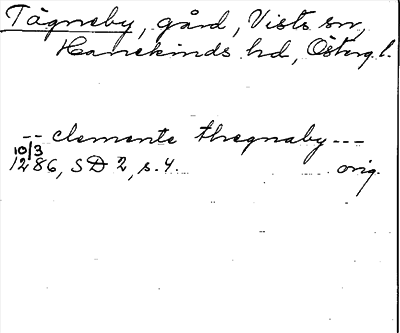 Tägneby, gård, Vists sn,
Hanekinds hd, Österg l.
-- clemente thregnaby ---
10/3
1286, SD 2, s. 4. orig.